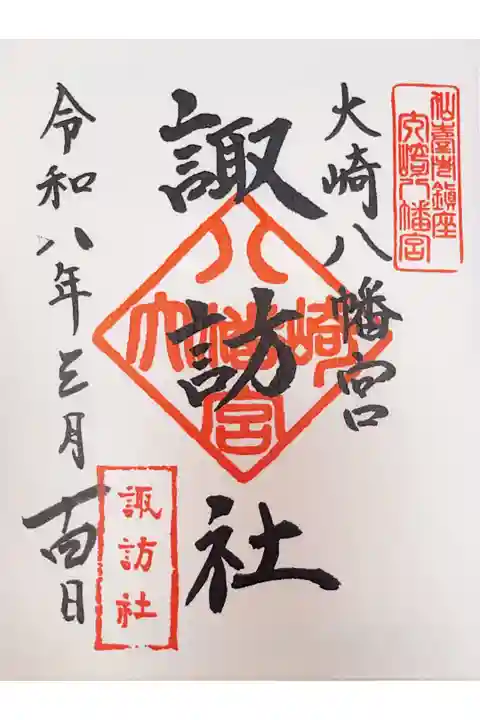 仙臺市鎮座
大崎八幡宮
大崎八幡宮
諏訪社
大崎八幡宮
令和八年三月
日
諏訪社